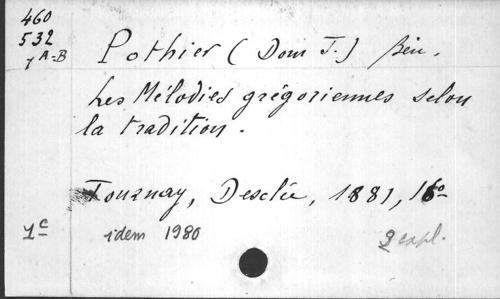 460
532
1 A-B
Pothier (Dom J.) Bén.
Les Mélodies grégoriennes selon
la tradition.
Tournay, Desclée, 1881, 16°
1c idem 1980 2 expl.